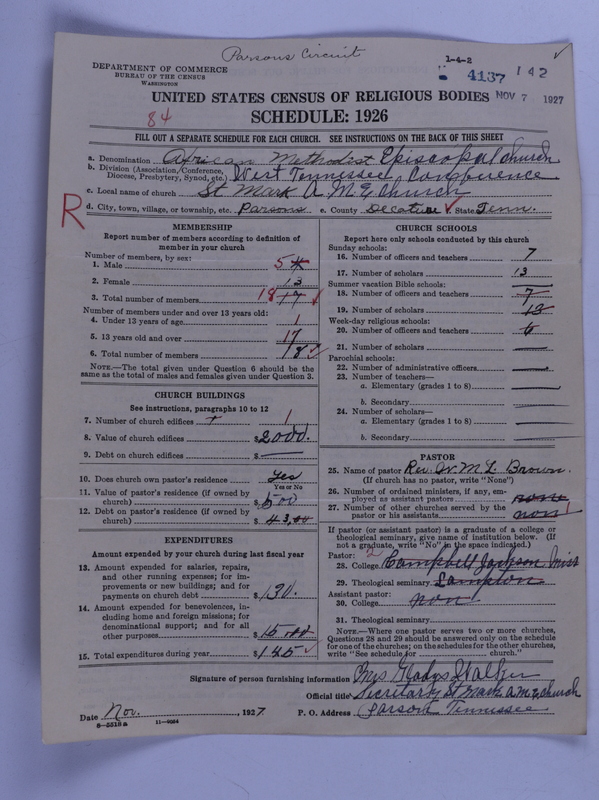 Parsons Circuit
DEPARTMENT OF COMMERCE
BUREAU OF THE CENSUS
WASHINGTON
1-4-2
4137 142
UNITED STATES CENSUS OF RELIGIOUS BODIES NOV 7 1927
84
SCHEDULE: 1926
FILL OUT A SEPARATE SCHEDULE FOR EACH CHURCH. SEE INSTRUCTIONS ON THE BACK OF THIS SHEET
a. Denomination African Methodist Episcopal church
b. Division (Association/Conference, Diocese, Presbytery, Synod, etc.) West Tennessee Conference
c. Local name of church St Mark A. M. E. church
R
d. City, town, village, or township, etc. Parsons e. County Decatur State Tenn.
MEMBERSHIP
Report number of members according to definition of
member in your church
Number of members, by sex:
1. Male 5 4
2. Female 13
3. Total number of members 18 17
Number of members under and over 13 years old:
4. Under 13 years of age 1
5. 13 years old and over 17
6. Total number of members 18
NOTE.—The total given under Question 6 should be the
same as the total of males and females given under Question 3.
CHURCH BUILDINGS
See instructions, paragraphs 10 to 12
7. Number of church edifices 1
8. Value of church edifices $2000.
9. Debt on church edifices $
10. Does church own pastor's residence yes
Yes or No
11. Value of pastor's residence (if owned by
church) $500
12. Debt on pastor's residence (if owned by
church) $43.00
EXPENDITURES
Amount expended by your church during last fiscal year
13. Amount expended for salaries, repairs,
and other running expenses; for im-
provements or new buildings; and for
payments on church debt $130.
14. Amount expended for benevolences, in-
cluding home and foreign missions; for
denominational support; and for all
other purposes $15.00
15. Total expenditures during year $145
CHURCH SCHOOLS
Report here only schools conducted by this church
Sunday schools:
16. Number of officers and teachers 7
17. Number of scholars 13
Summer vacation Bible schools:
18. Number of officers and teachers 7
19. Number of scholars 13
Week-day religious schools:
20. Number of officers and teachers 6
21. Number of scholars
Parochial schools:
22. Number of administrative officers
23. Number of teachers—
a. Elementary (grades 1 to 8)
b. Secondary
24. Number of scholars—
a. Elementary (grades 1 to 8)
b. Secondary
PASTOR
25. Name of pastor Rev. W. M. L. Brown.
(If church has no pastor, write "None")
26. Number of ordained ministers, if any, em-
ployed as assistant pastors none
27. Number of other churches served by the
pastor or his assistants non 1
If pastor (or assistant pastor) is a graduate of a college or
theological seminary, give name of institution below. (If
not a graduate, write "No" in the space indicated.)
Pastor: 2
28. College Campbell Jackson Miss
29. Theological seminary Lampton
Assistant pastor:
30. College non
31. Theological seminary
NOTE.—Where one pastor serves two or more churches,
Questions 28 and 29 should be answered only on the schedule
for one of the churches; on the schedules for the other churches,
write "See schedule for church."
Signature of person furnishing information Mrs Gladys Walker
Official title Secritary St Mark a m e church
Date Nov. , 1927. P. O. Address Parson Tennessee
8-5518a 11-9064